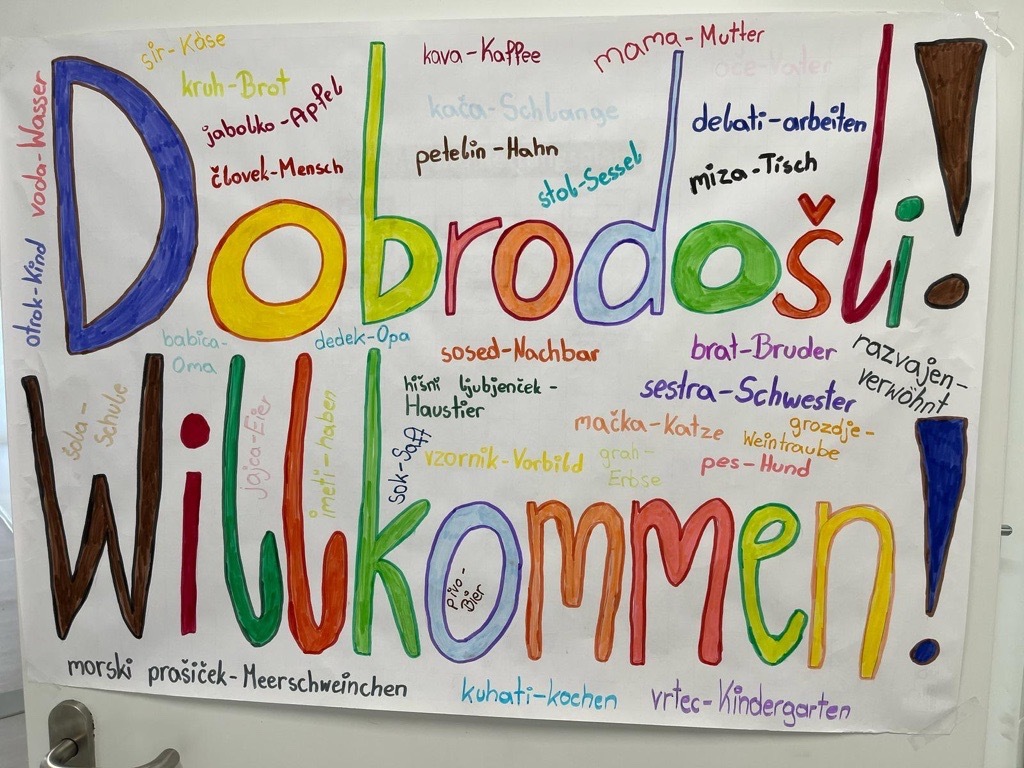 sir-Käse
kava-Kaffee
mama-Mutter
oče-Vater
kruh-Brot
voda-Wasser
jabolko-Apfel
kača-Schlange
delati-arbeiten
človek-Mensch
petelin-Hahn
stol-Sessel
miza-Tisch
Dobrodošli!
otrok-Kind
babica-
Oma
dedek-Opa
sosed-Nachbar
brat-Bruder
razvajen-
verwöhnt
hišni ljubjenček-
Haustier
sestra-Schwester
mačka-Katze
grozdje-
Weintraube
vzornik-Vorbild
grah-
Erbse
pes-Hund
šoba-
Schube
jajca-Eier
imeti-haben
sok-Saft
Willkommen!
pivo-
Bier
morski prašiček-Meerschweinchen
kuhati-kochen
vrtec-Kindergarten